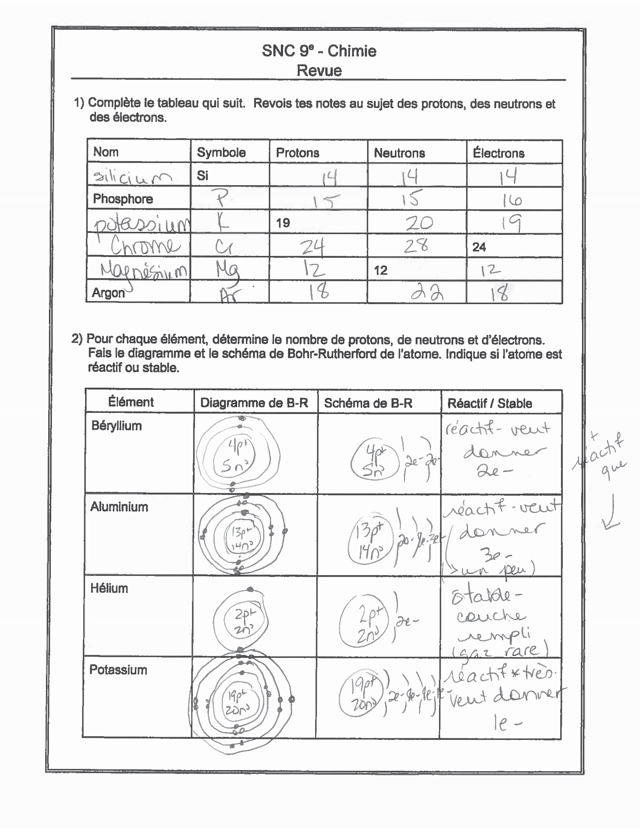 SNC 9e - Chimie
Revue
1) Complète le tableau qui suit. Revois tes notes au sujet des protons, des neutrons et
des électrons.
Nom Symbole Protons Neutrons Électrons
silicium Si 14 14 14
Phosphore P 15 15 16
potassium K 19 20 19
Chrome Cr 24 28 24
Magnésium Mg 12 12 12
Argon Ar 18 22 18
2) Pour chaque élément, détermine le nombre de protons, de neutrons et d'électrons.
Fais le diagramme et le schéma de Bohr-Rutherford de l'atome. Indique si l'atome est
réactif ou stable.
Élément Diagramme de B-R Schéma de B-R Réactif / Stable
Béryllium
4p+
5n°
4p+
5n°
2e- 2e-
réactif - veut
donner
2e-
+
réactif
que
Aluminium
13p+
14n°
13p+
14n°
réactif - veut
donner
3e-
(> un peu)
Hélium
2p+
2n°
2p+
2n°
2e-
stable -
couche
rempli
(gaz rare)
Potassium
19p+
20n°
19p+
20n°
réactif * très.
veut donner
1e-